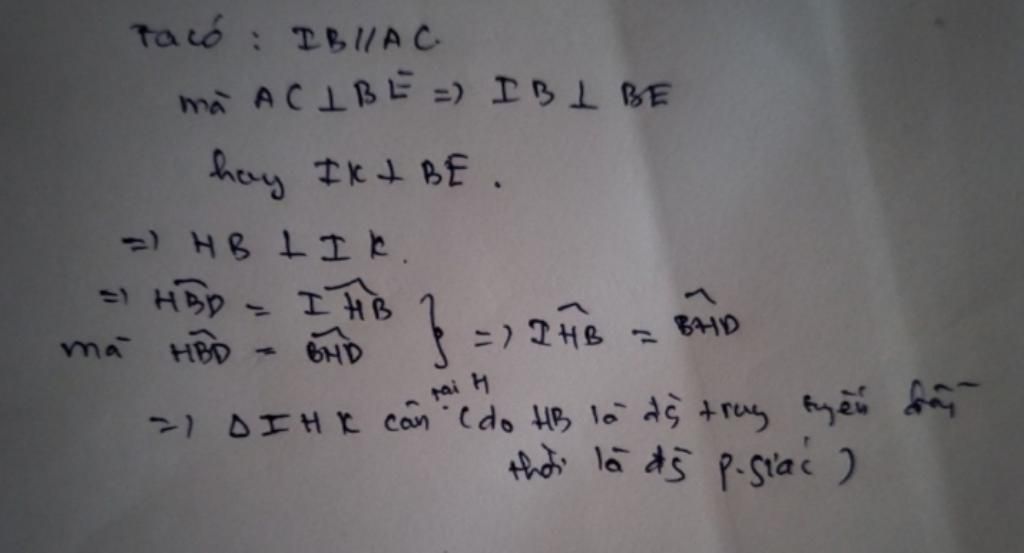 Ta có : IB//AC.
mà AC ⊥ BE => IB ⊥ BE
hay IK ⊥ BE .
=> HB ⊥ IK.
=> HBD̂ = IHB̂ } => IHB̂ = BHD̂
mà HBD̂ = BHD̂
=> Δ IHK cân tại H (do HB là đg trung tuyến đồng
thời là đg p.giác )